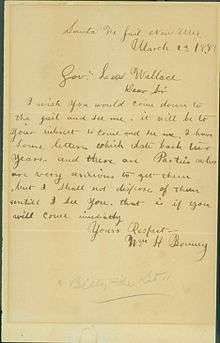 Santa Fe Jail New Mex
March 2d 1881
Gov. Lew Wallace
Dear Sir
I wish you would come down to
the jail and see me. it will be to
your interest to come and see me. I have
some letters which date back two
years. and there are Parties who
are very anxious to get them
but I shall not dispose of them
untill I see you. that is if you
will come imediatly
Yours Respect—
Wm H Bonney
"Billy the Kid"